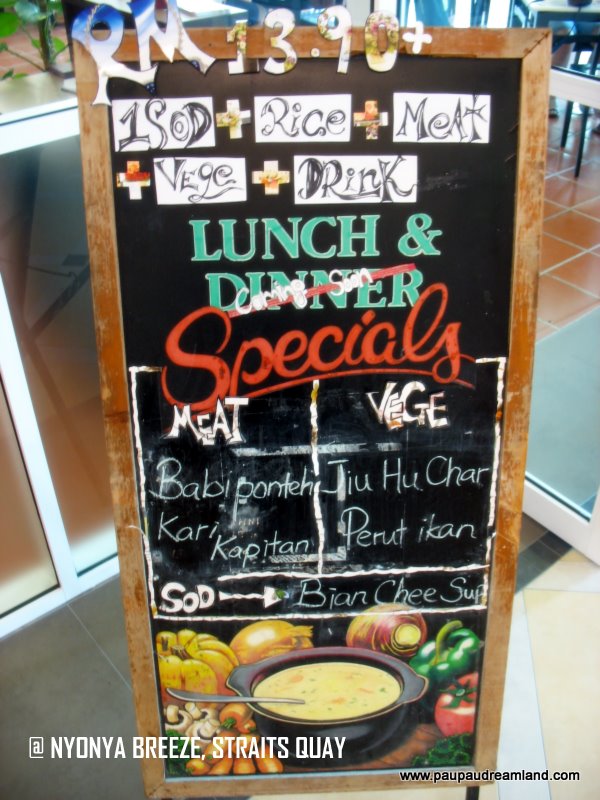 RM 13.90+
1SOD + Rice + MEAT
+ VEGE + DRINK
LUNCH &
DINNER
Coming Soon
Specials
MEAT VEGE
Babi ponteh Jiu Hu Char
Kari Kapitan Perut ikan
SOD Bian Chee Sup
@ NYONYA BREEZE, STRAITS QUAY
www.paupaudreamland.com